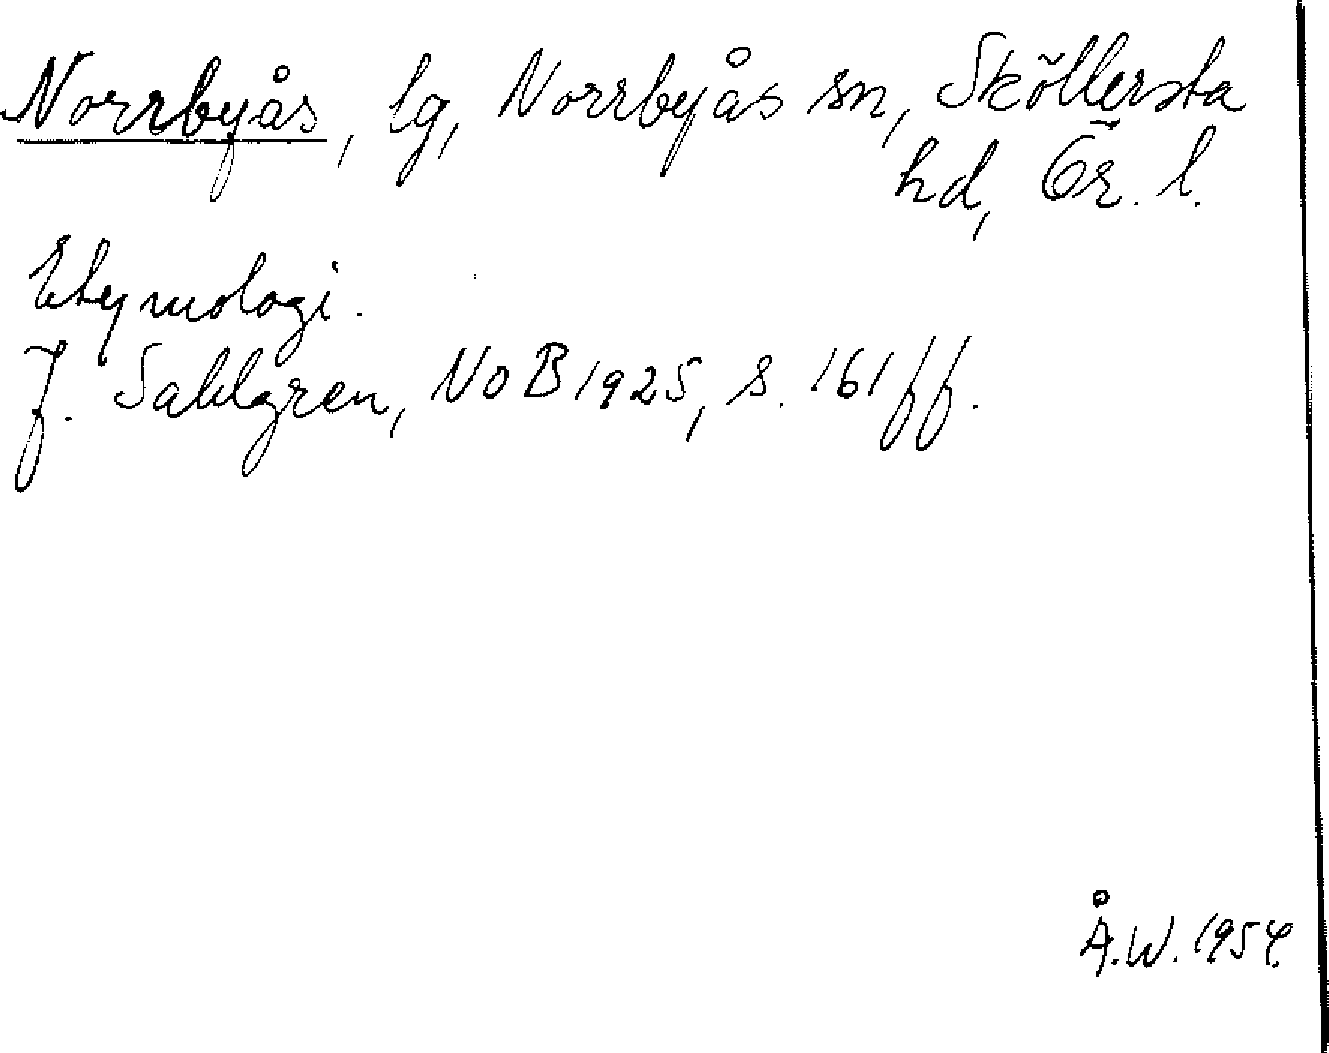 Norrbyås, lg, Norrbyås sn, Sköllersta
hd, Ör. l.
Etymologi.
J. Sahlgren, NoB 1925, s. 161 ff.
Å.W. 1954.